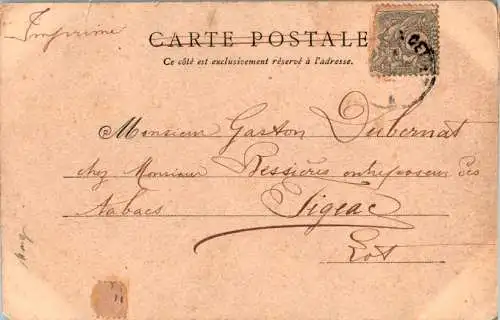 Imprimé
CARTE POSTALE
Ce côté est exclusivement réservé à l'adresse.
Monsieur Gaston Dubernat
chez Monsieur Bessières entreposeur des
tabacs Figeac
Lot